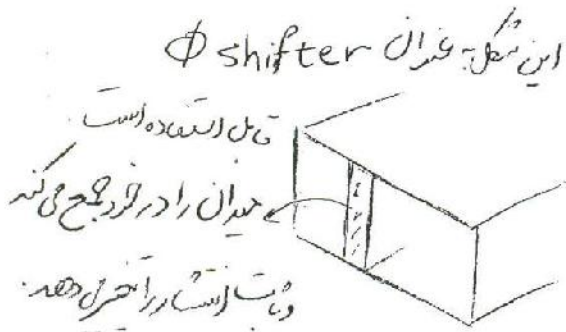 این شکل به عنوان Φ shifter
قابل استفاده است
میدان را در خود جمع می کند
و ثابت انتشار را تغییر می دهد.